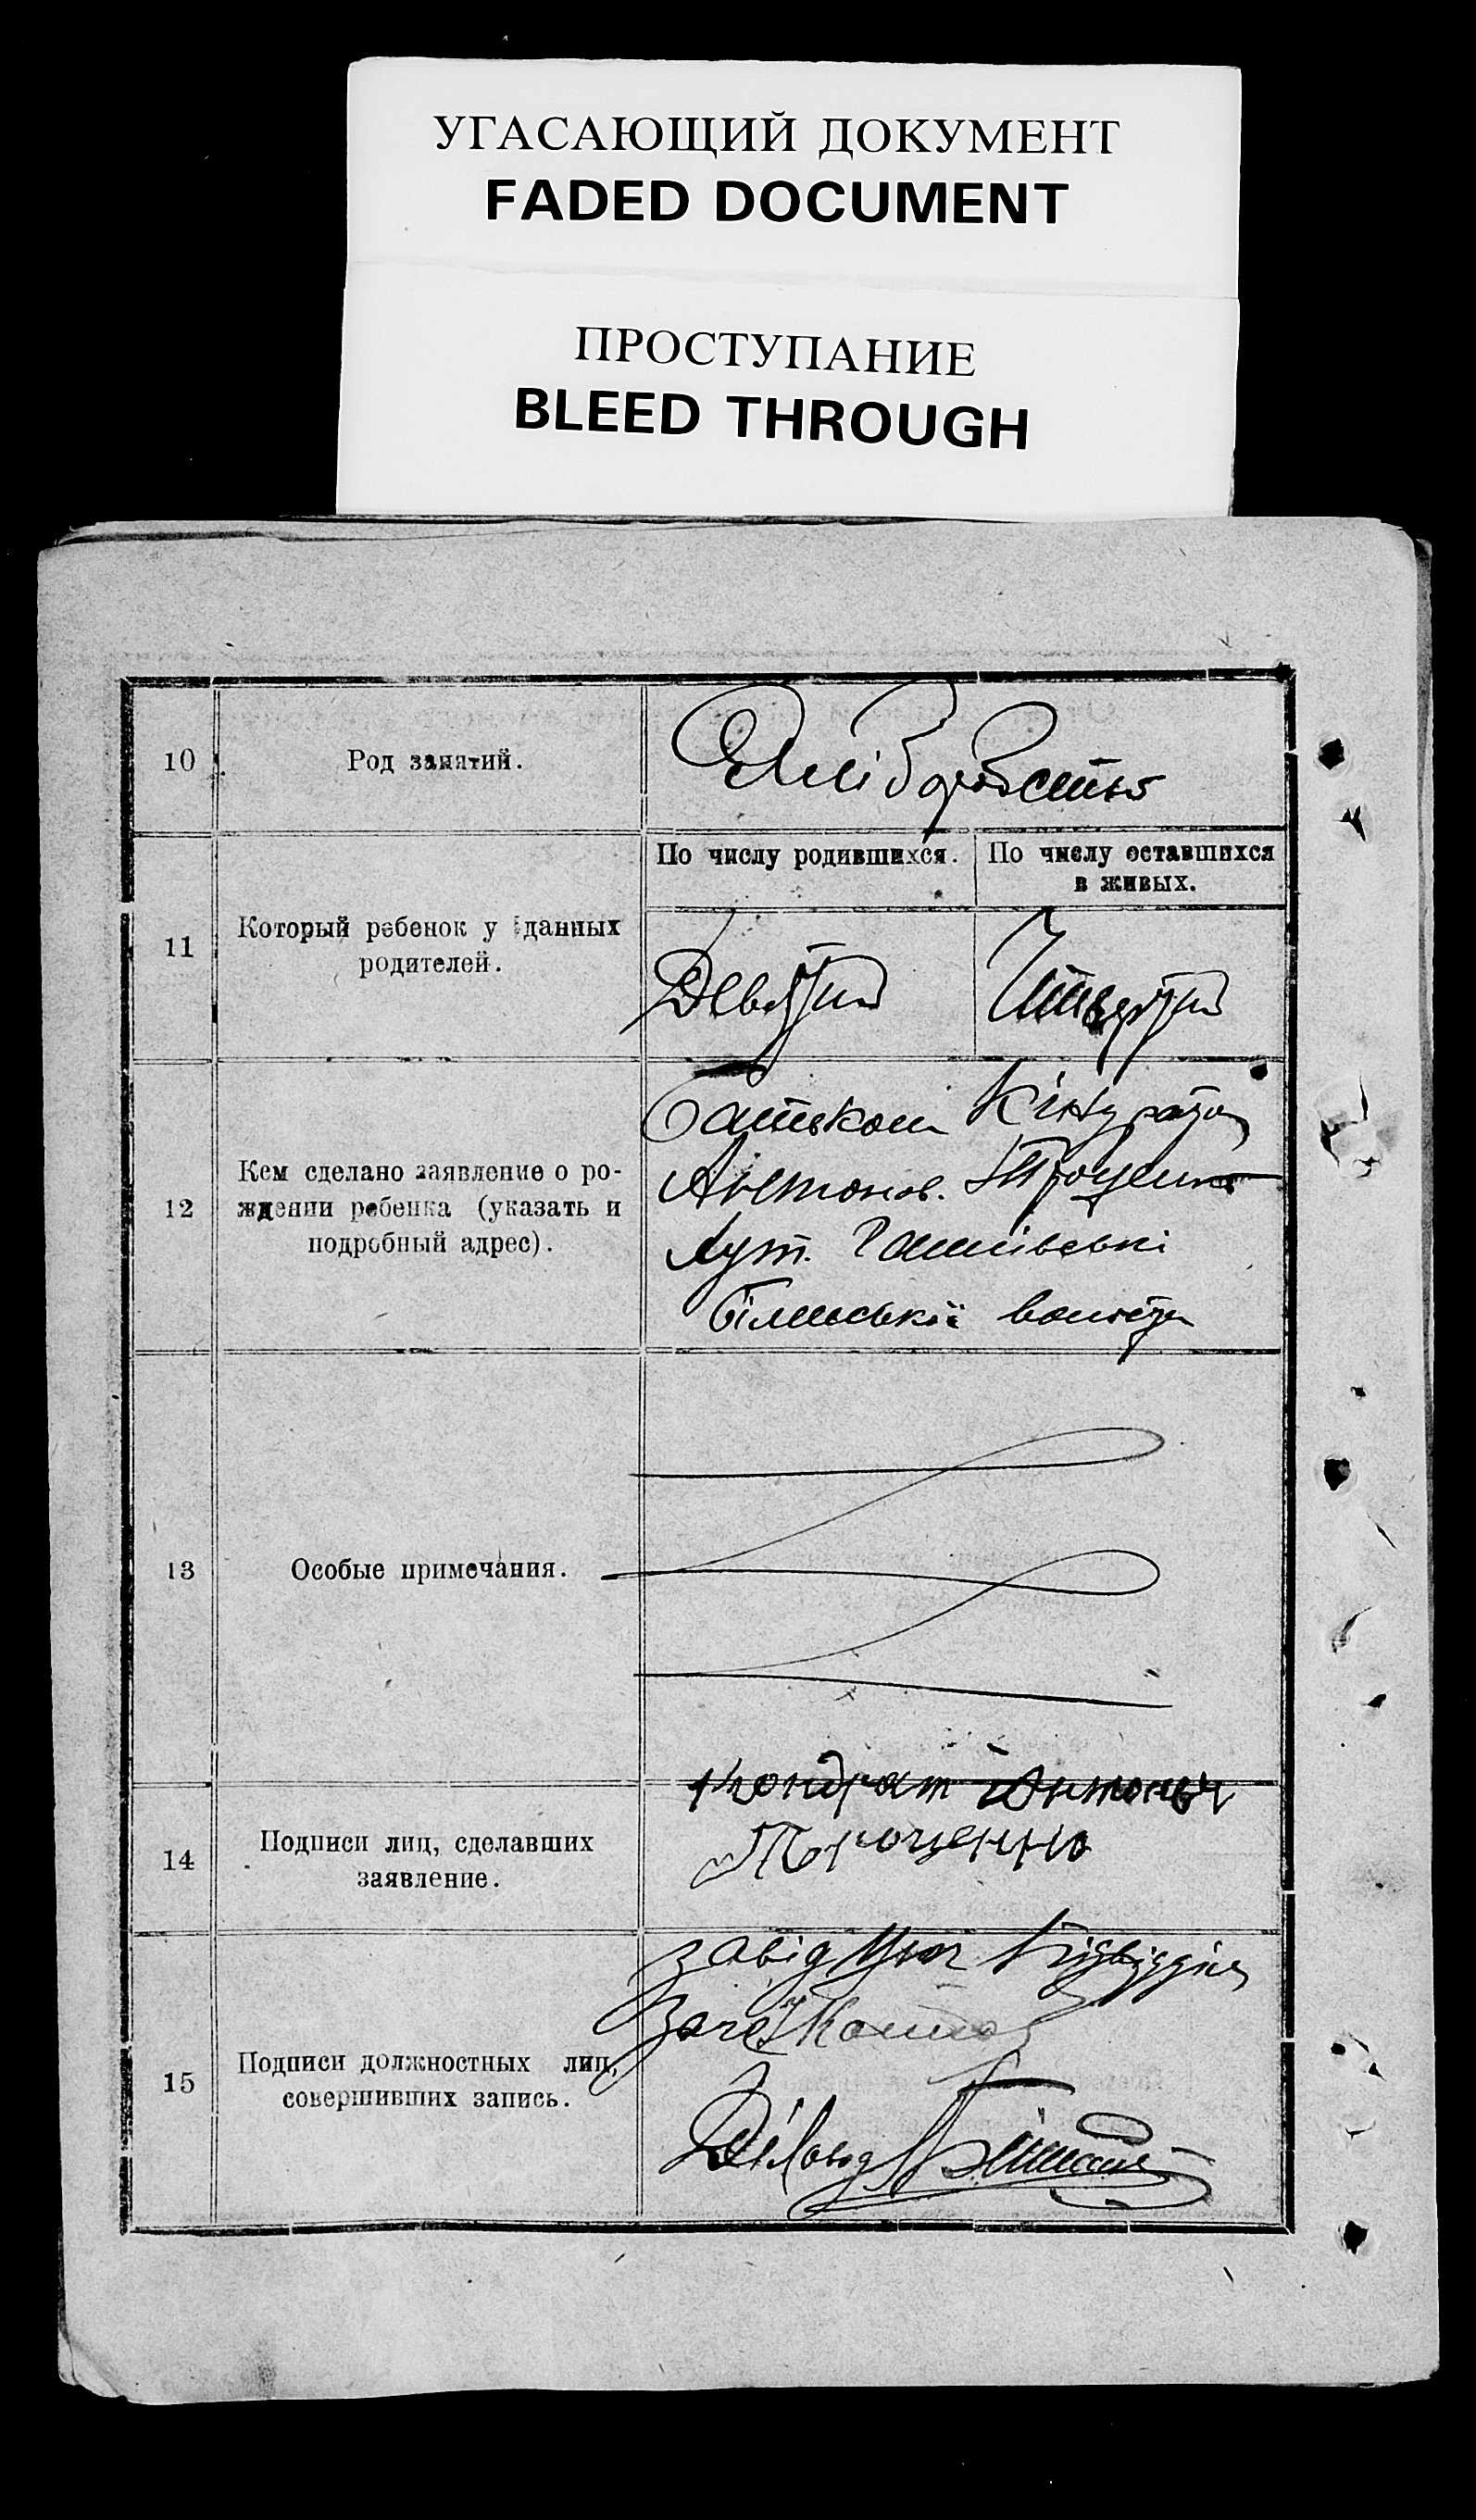 УГАСАЮЩИЙ ДОКУМЕНТ
FADED DOCUMENT
ПРОСТУПАНИЕ
BLEED THROUGH
10 Род занятий. Хліборобство
По числу родившихся. По числу оставшихся
в живых.
11 Который ребенок у данных
родителей.
Девятий Четвертий
12 Кем сделано заявление о ро-
ждении ребенка (указать и
подробный адрес).
Батьком Кіндратом
Антонов. Троценко
Хут.
волости
13 Особые примечания.
14 Подписи лиц, сделавших
заявление.
Кондрат Антонович
Троценко
15 Подписи должностных лиц,
совершивших запись.
Завідуюч Підвідділом
Діловод